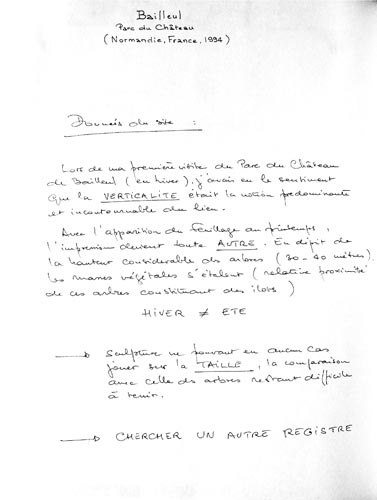 Bailleul
Parc du Château
(Normandie, France, 1994)
Données du site :
Lors de ma première visite du Parc du Château
de Bailleul (en hiver), j'avais eu le sentiment
que la VERTICALITE était la notion prédominante
et incontournable du lieu.
Avec l'apparition du feuillage au printemps,
l'impression devient toute AUTRE. En dépit de
la hauteur considérable des arbres (30-40 mètres),
les masses végétales s'étalent (relative proximité
de ces arbres constituant des îlots)
HIVER ≠ ETE
→ Sculpture ne pouvant en aucun cas
jouer sur la TAILLE, la comparaison
avec celle des arbres restant difficile
à tenir.
→ CHERCHER UN AUTRE REGISTRE